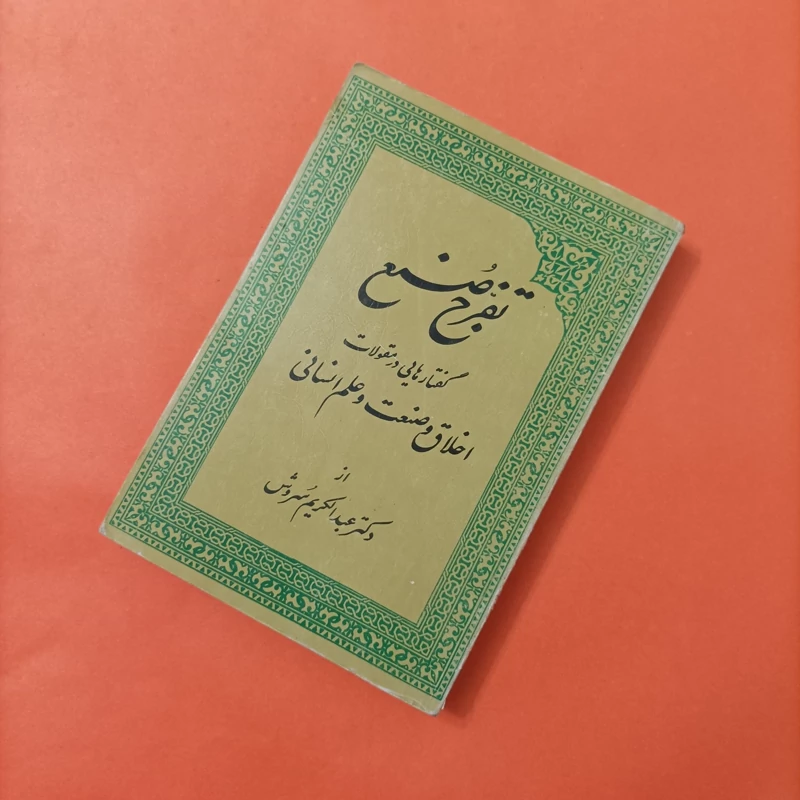 تفرّج صُنع
گفتارهایی در مقولات
اخلاق و صنعت و علم انسانی
از
دکتر عبدالکریم سروش